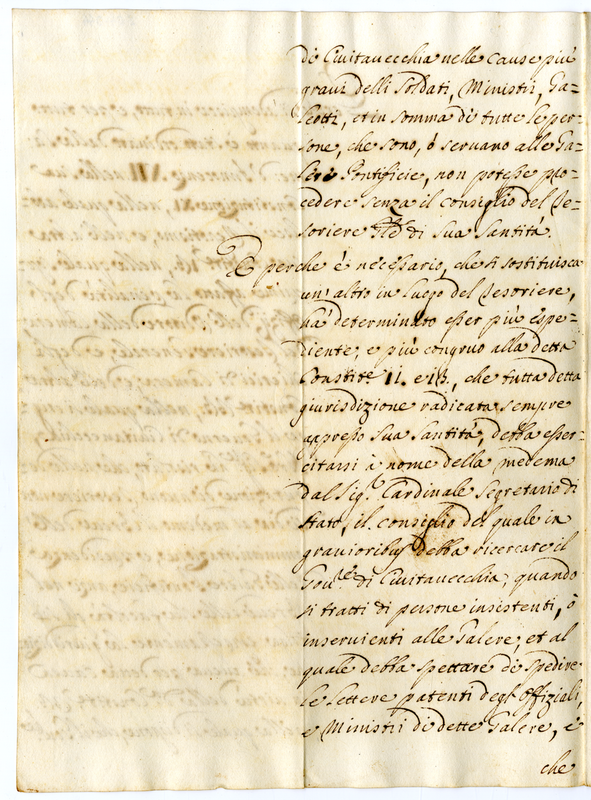 di Ciuitauecchia nelle cause più
graui delli Soldati, Ministri, Ga=
leotti, et in somma di tutte le per=
sone, che sono, ò seruano alle Ga=
lere Pontificie, non potesse pro=
cedere senza il consiglio del Te=
soriere Gñle di Sua Santità.
E perche è necessario, che si sostituisca
un' altro in luogo del Tesoriere,
hà determinato esser più espe=
diente, e più congruo alla detta
Constit.e 11. e 13., che tutta detta
giurisdizione radicata sempre
appresso Sua Santità, debba esser=
citarsi à nome della medema
dal Sig.r Cardinale Segretario di
Stato, il consiglio del quale in
grauioribus debba ricercare il
Gou.re di Ciuitauecchia, quando
si tratti di persone insistenti, ò
inseruienti alle Galere, et al
quale debba spettare di spedire
le lettere patenti degl' Offiziali,
e Ministri di dette Galere, e
che